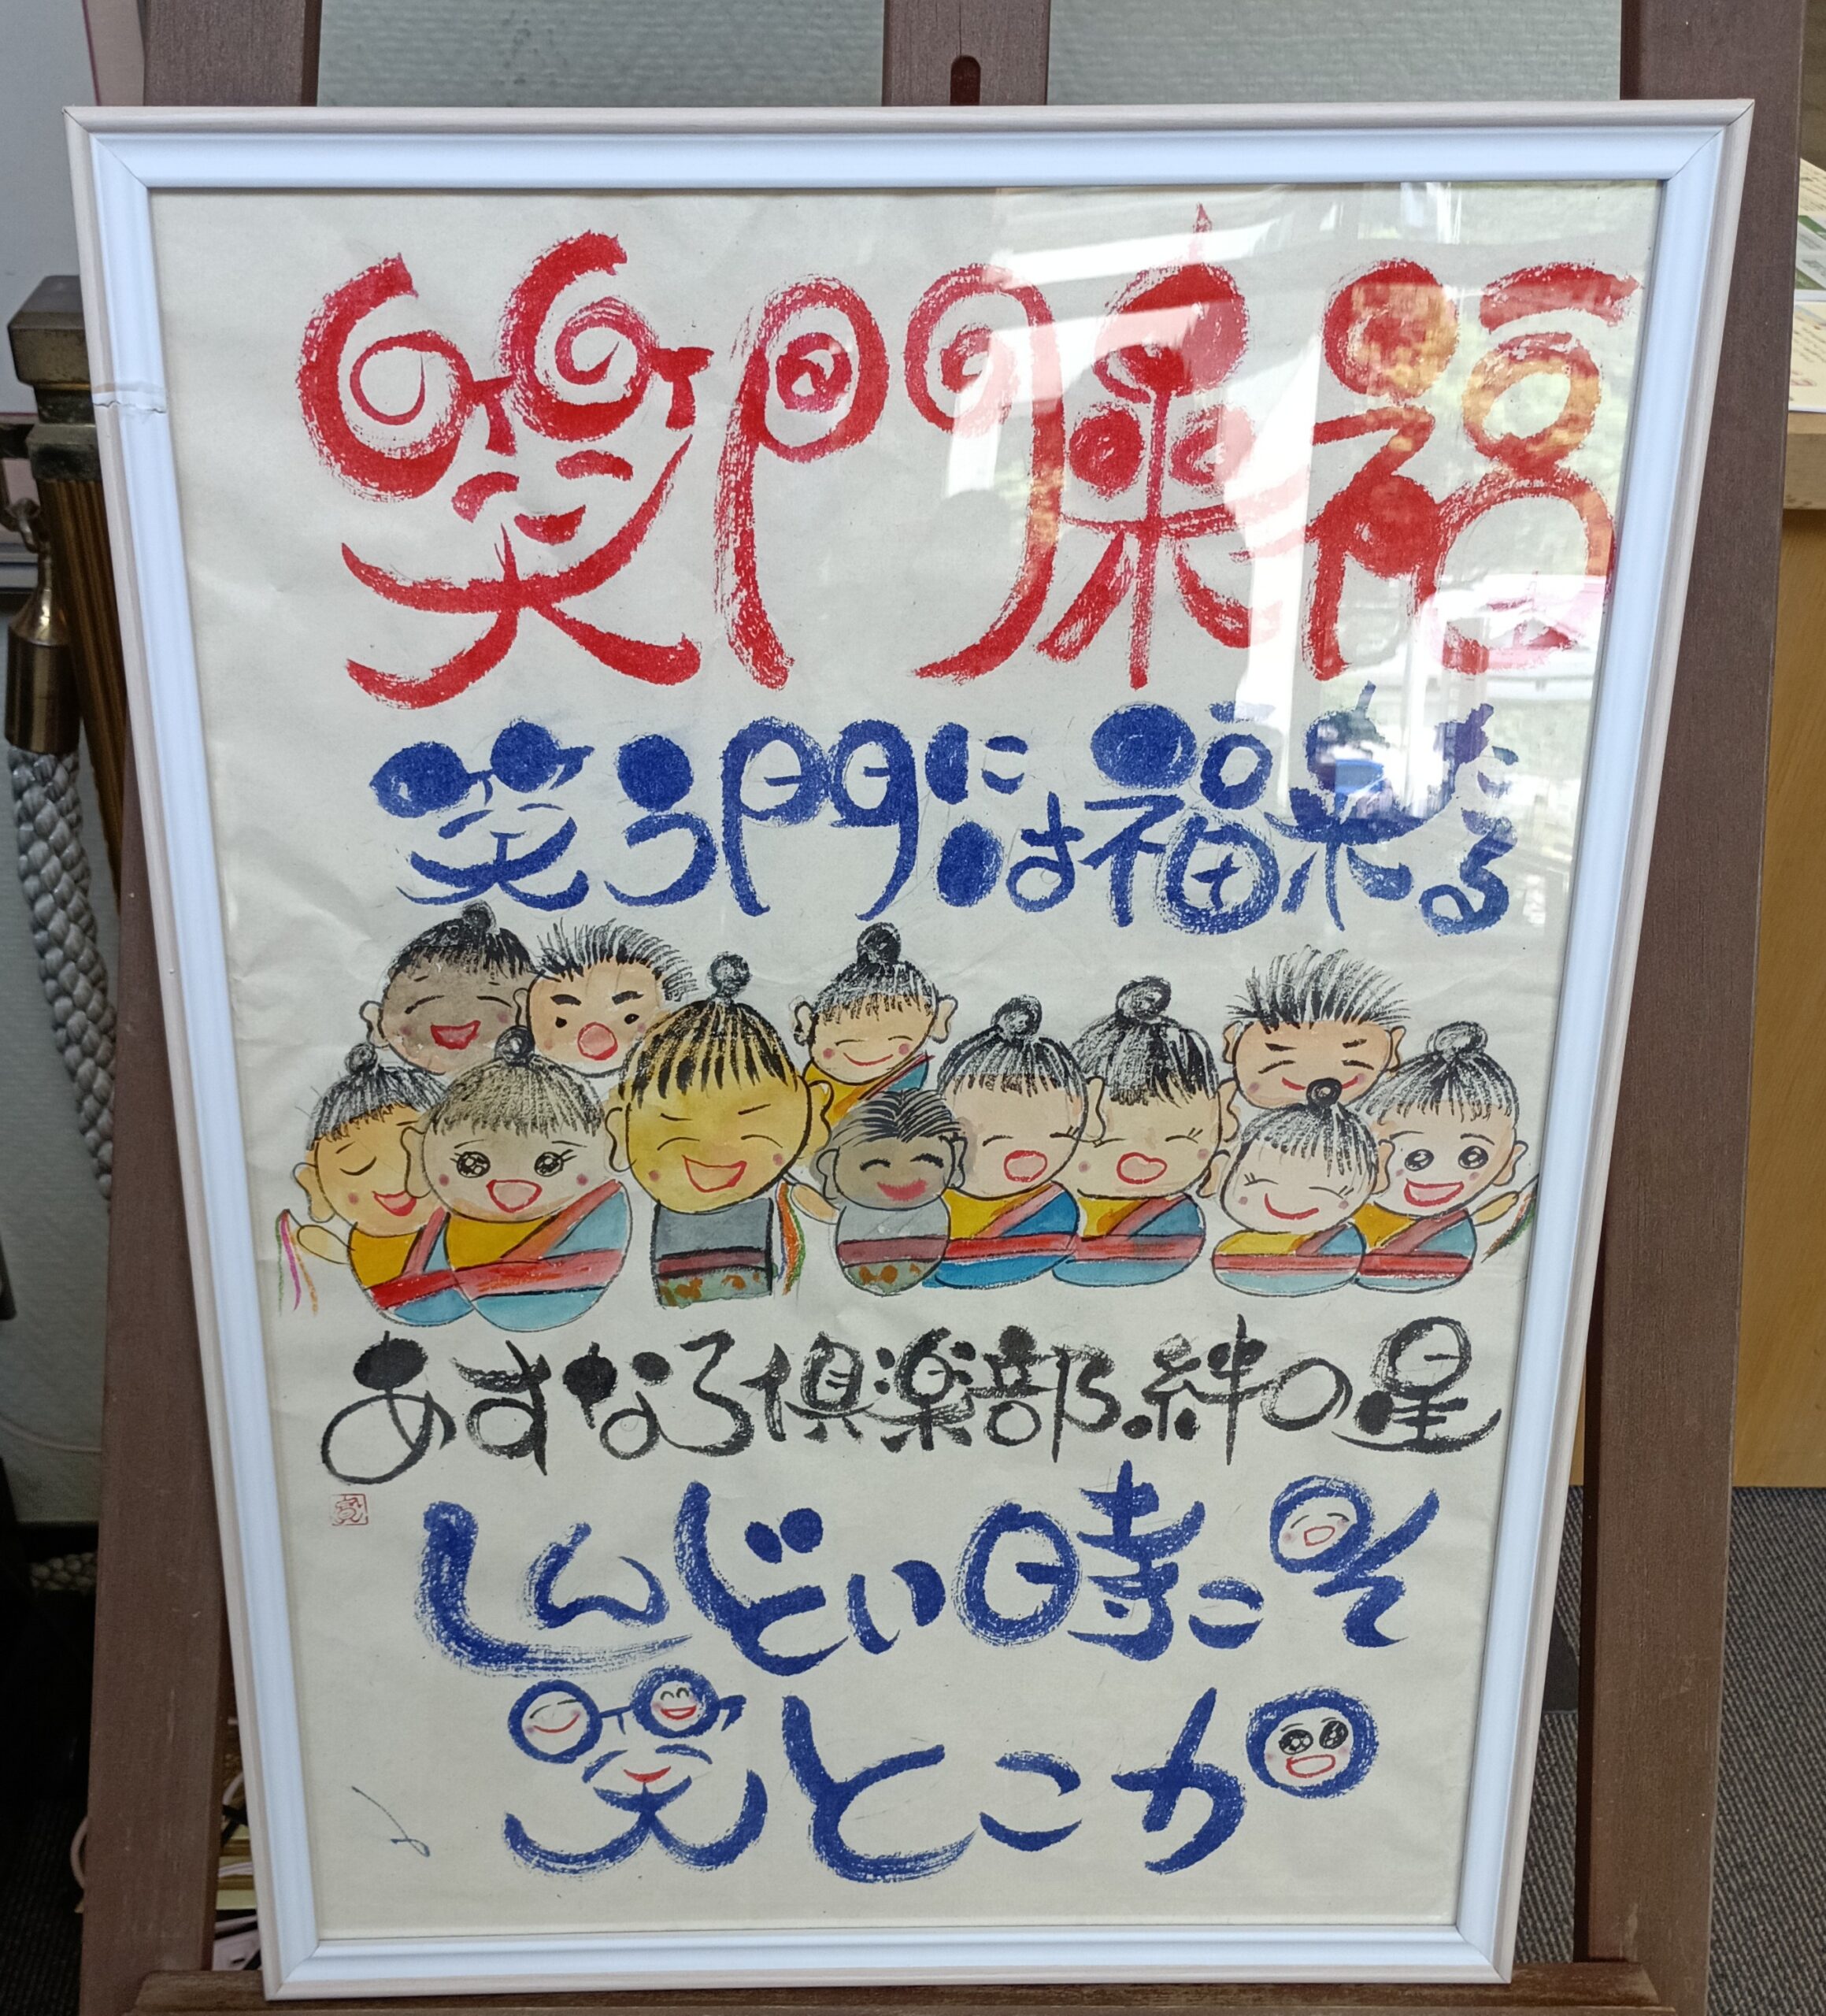 笑門来福
笑う門には福来たる
あすなろ倶楽部.絆の星
しんどい時こそ
笑とこか